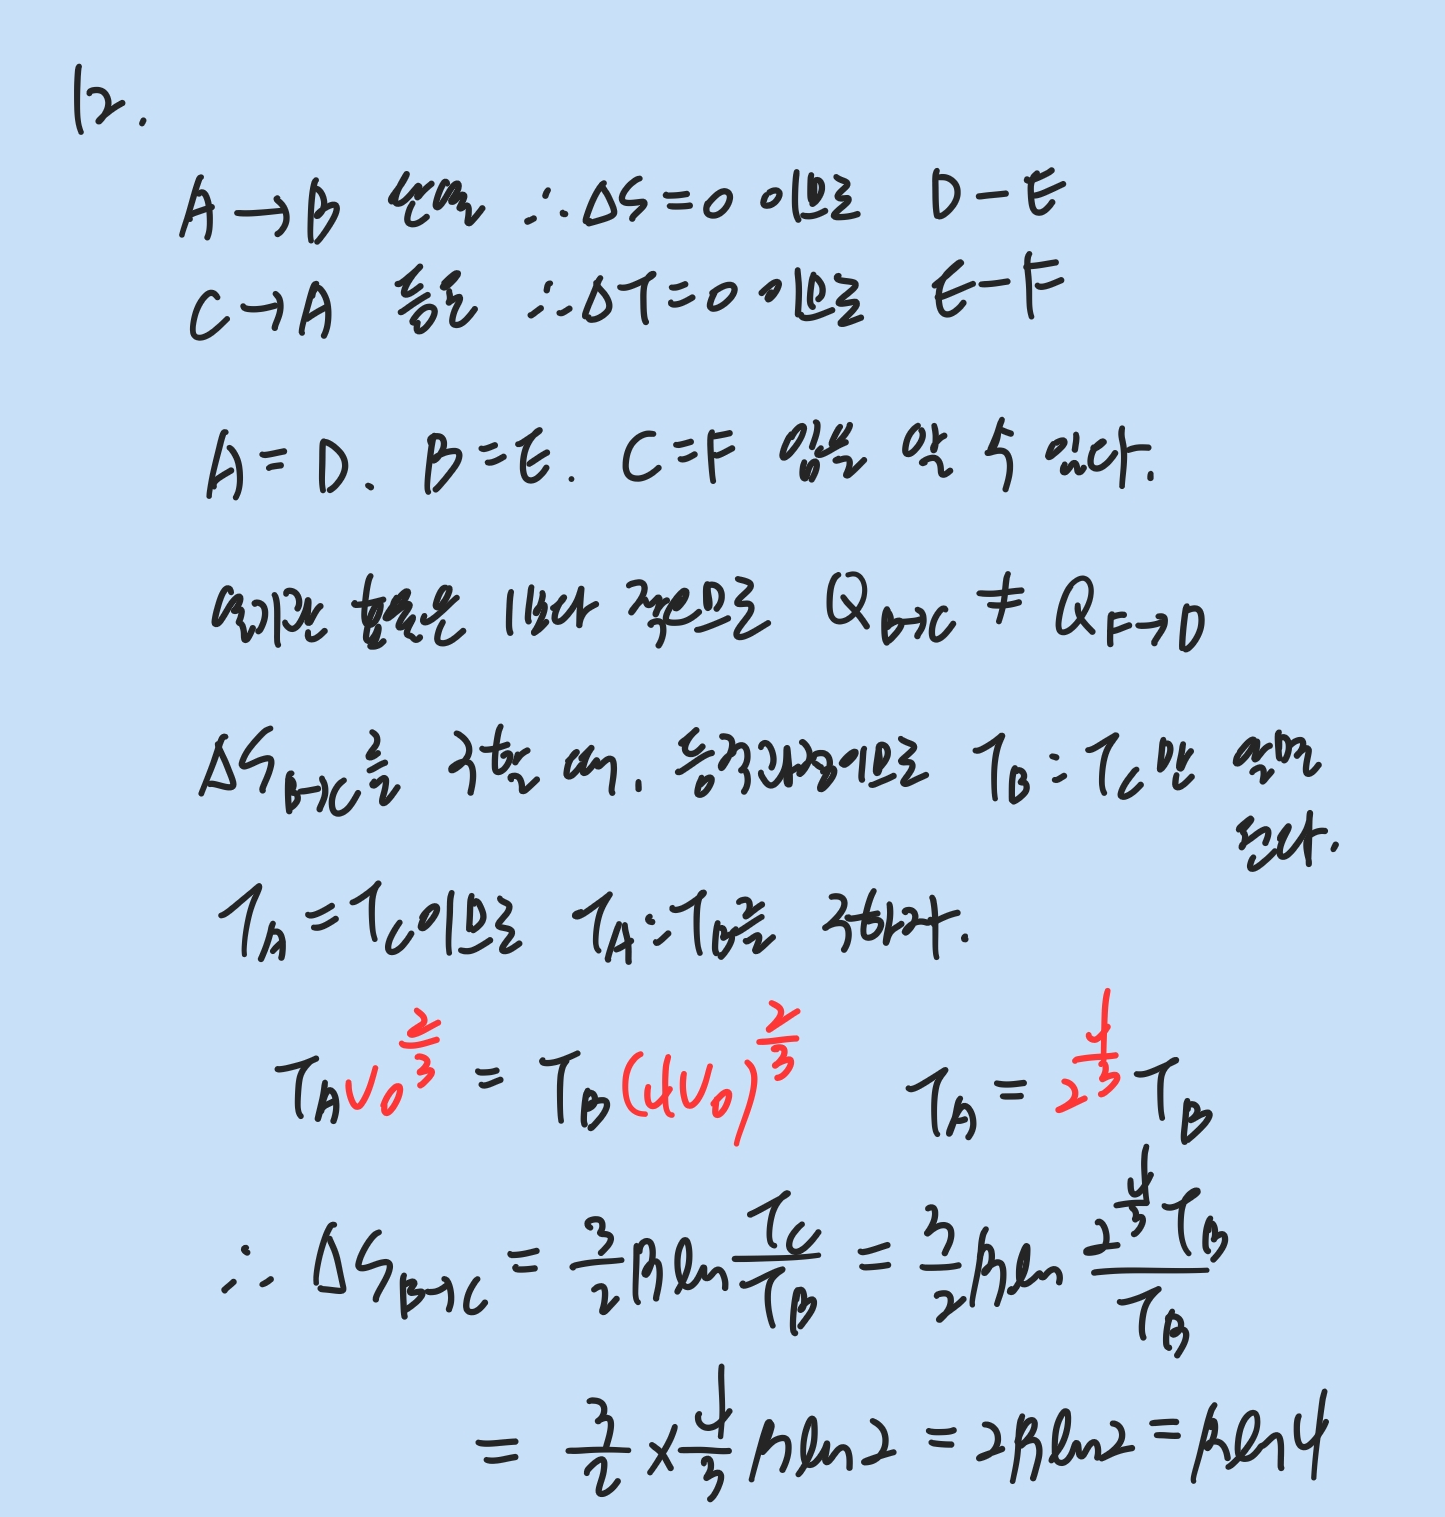 12.
A → B 단열 ∴ ΔS = 0 이므로 D - E
C → A 등온 ∴ ΔT = 0 이므로 E - F
A = D. B = E. C = F 임을 알 수 있다.
열기관 효율은 1보다 작으므로 Q_{B→C} ≠ Q_{F→D}
ΔS_{B→C}를 구할 때, 등적과정이므로 T_B : T_C 만 알면
된다.
T_A = T_C 이므로 T_A : T_B를 구하자.
T_A V_0^{2/3} = T_B (4V_0)^{2/3} T_A = 2^{4/3} T_B
∴ ΔS_{B→C} = 3/2 R ln T_C/T_B = 3/2 R ln 2^{4/3} T_B/T_B
= 3/2 × 4/3 R ln 2 = 2R ln 2 = R ln 4